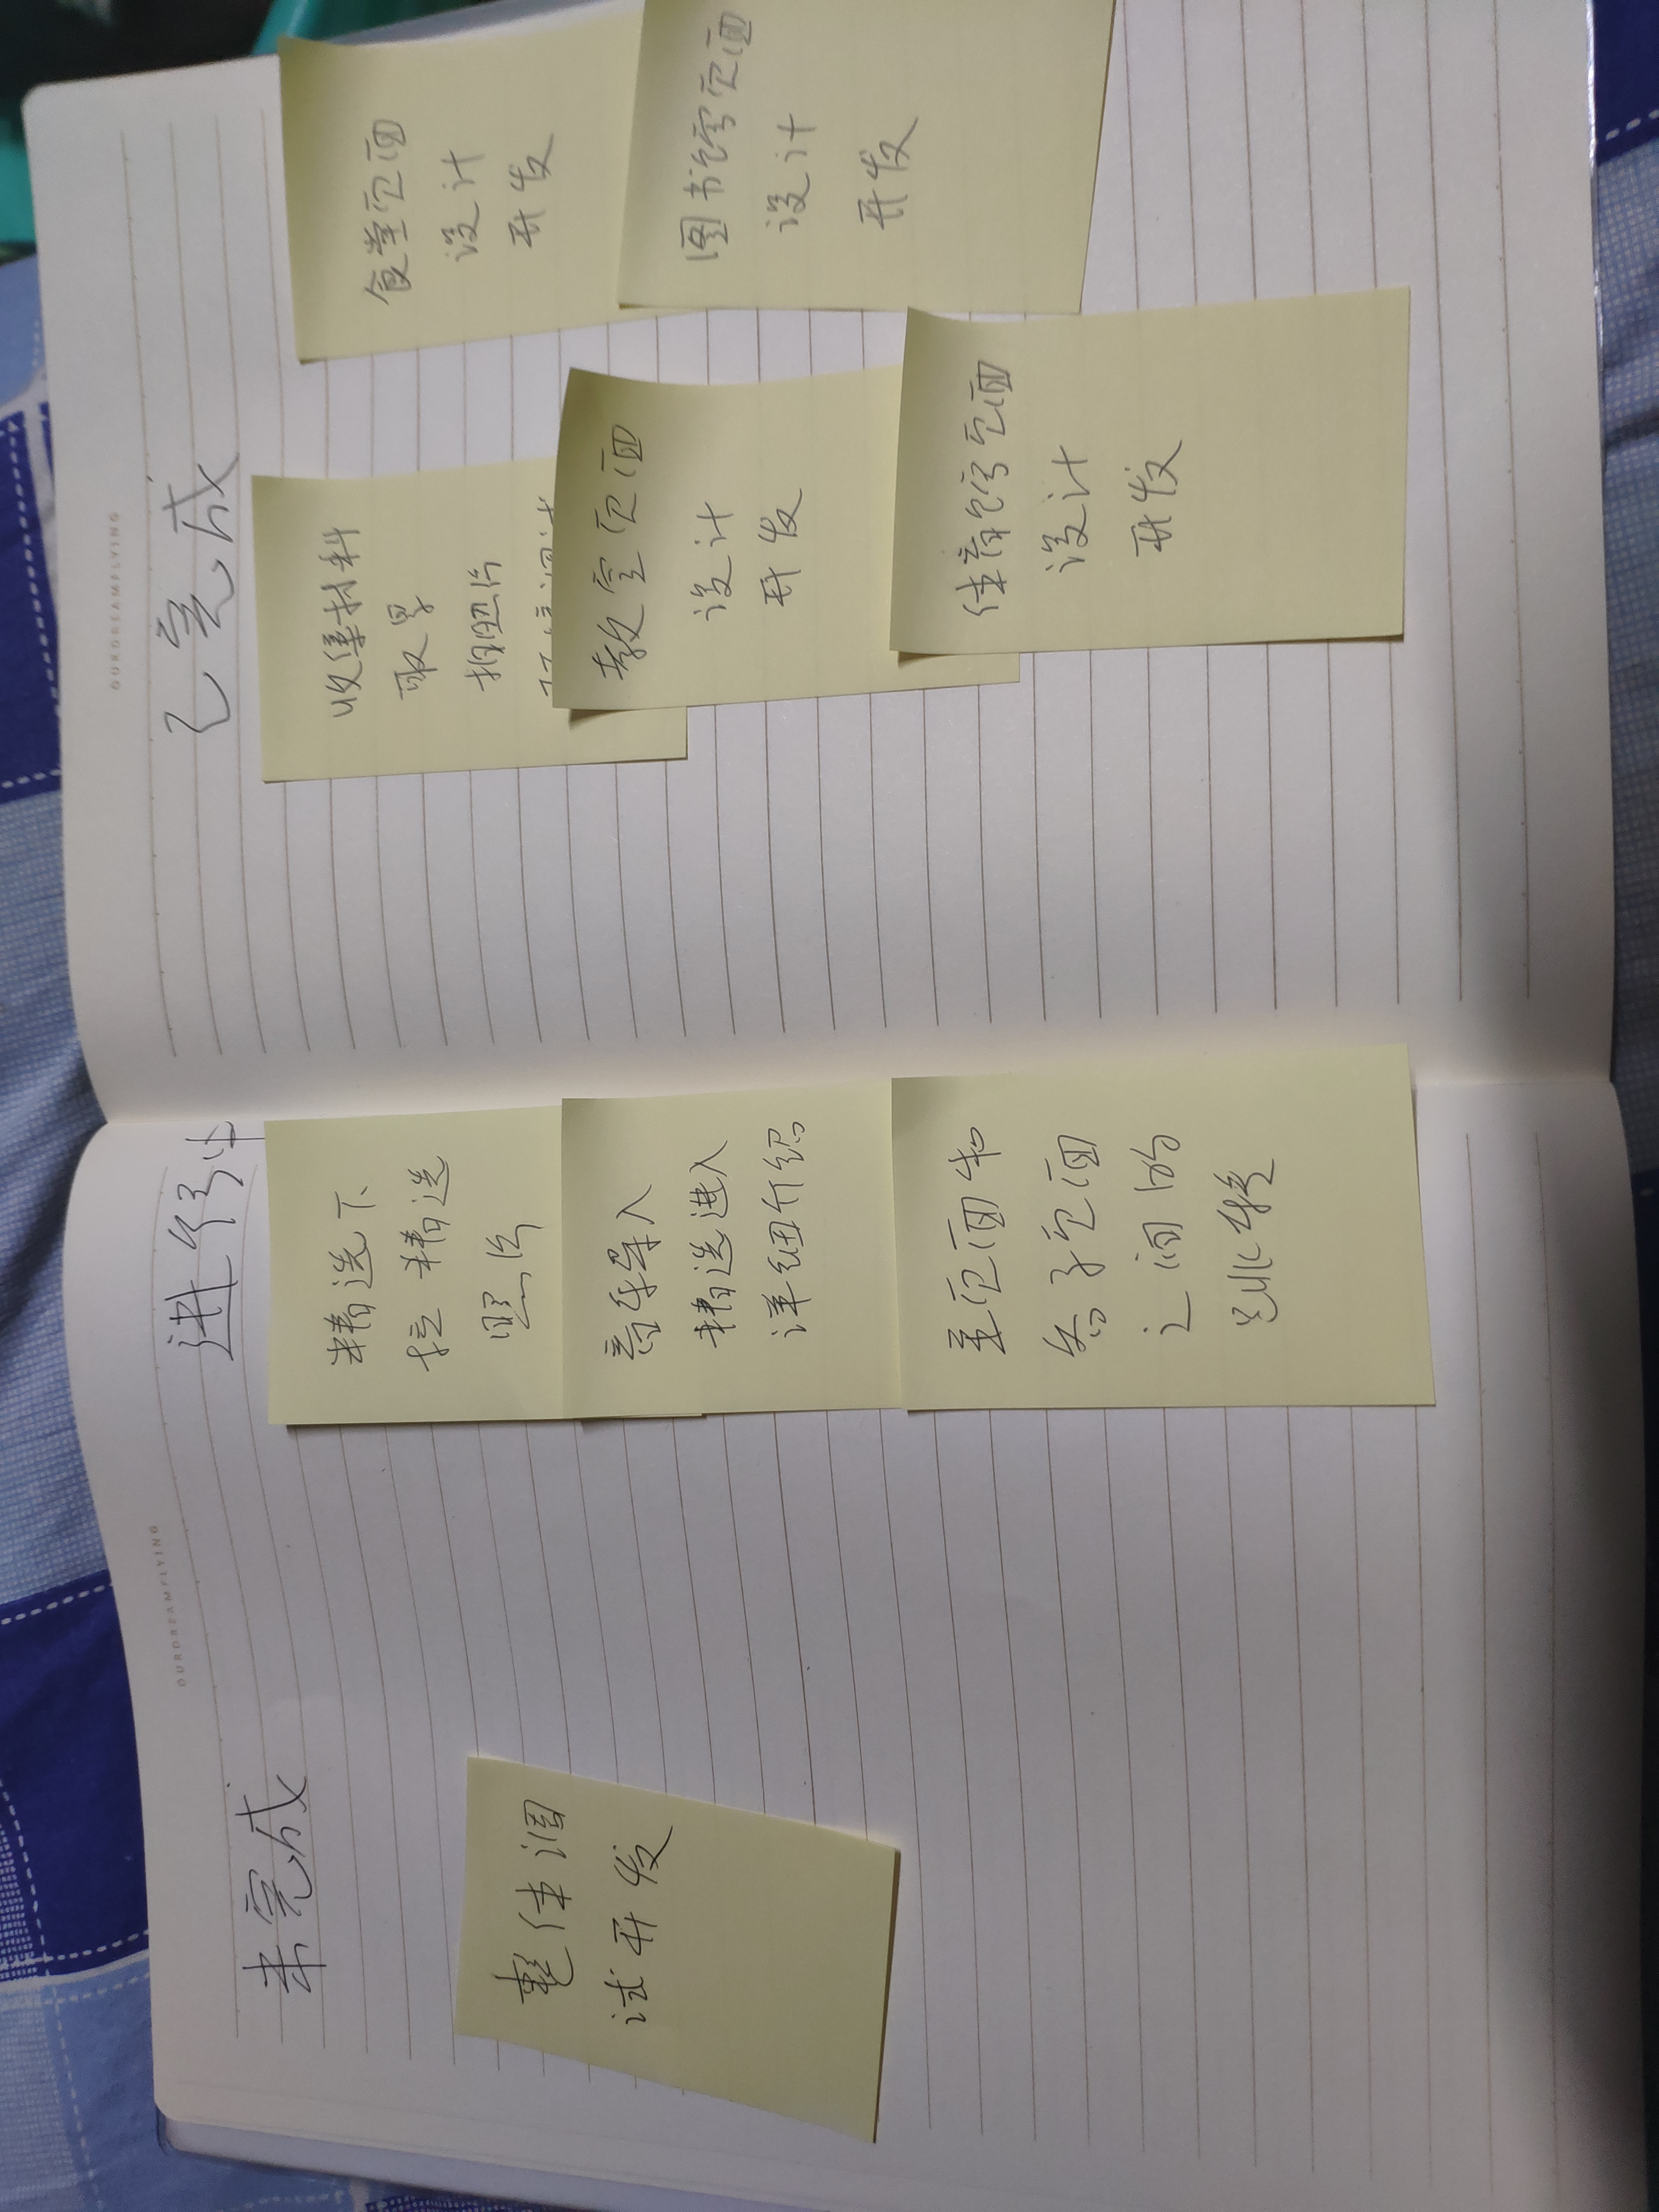 OURDREAMFLYING
未完成
整体调
试开发
进行中
精选下
拉精选
照片
音乐导入
精选进入
详细介绍
主页面和
各子页面
之间的
跳转
OURDREAMFLYING
已完成
收集材料
取景
拍照片
教室页面
设计
开发
体育馆页面
设计
开发
食堂页面
设计
开发
图书馆页面
设计
开发